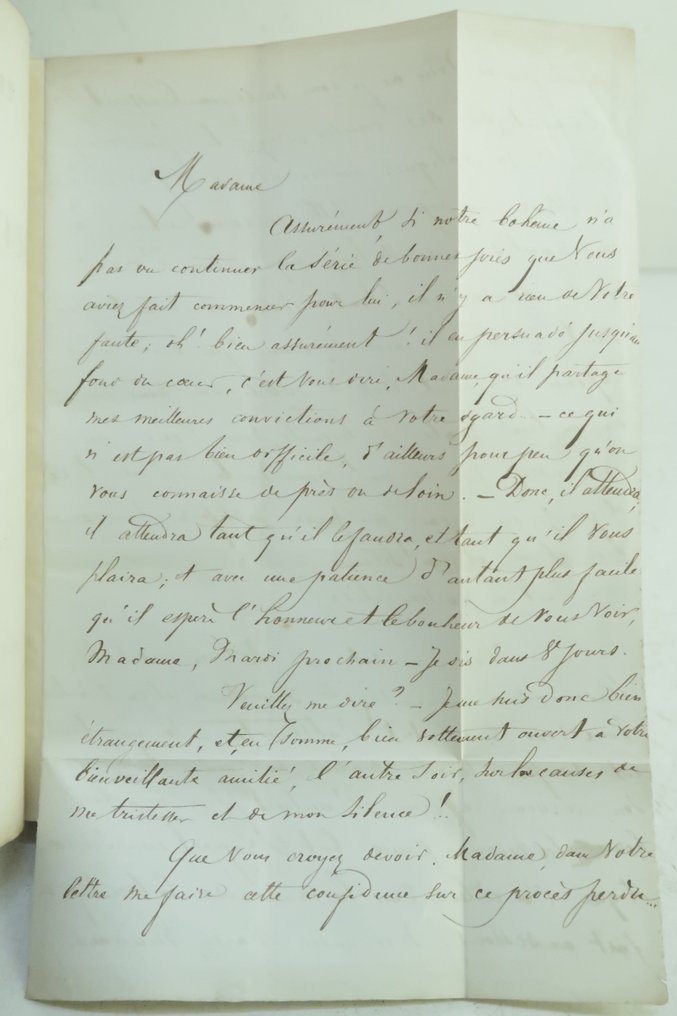 Madame
Assurément, si notre bohème n'a
pas vu continuer la série de bonnes soirées que Vous
aviez fait commencer pour lui, il n'y a rien de Votre
faute; oh! bien assurément! il en persuadé jusqu'au
fond du cœur, c'est Vous dire, Madame, qu'il partage
mes meilleures convictions à Votre égard. — ce qui
n'est pas bien difficile, d'ailleurs pour peu qu'on
vous connaisse de près ou de loin. — Donc, il attendra,
il attendra tant qu'il le faudra, et tant qu'il Vous
plaira; et avec une patience d'autant plus facile
qu'il espère l'honneur et le bonheur de Vous Voir,
Madame, Mardi prochain — Je dis dans 8t Jours.
Veuillez me dire? — Je me suis donc bien
étrangement, et, en somme, bien sottement ouvert à Votre
bienveillante amitié, l'autre soir, sur les causes de
ma tristesse et de mon silence!..
Que Vous croyez devoir, Madame, dans Votre
lettre me faire cette confidence sur ce procès perdu...